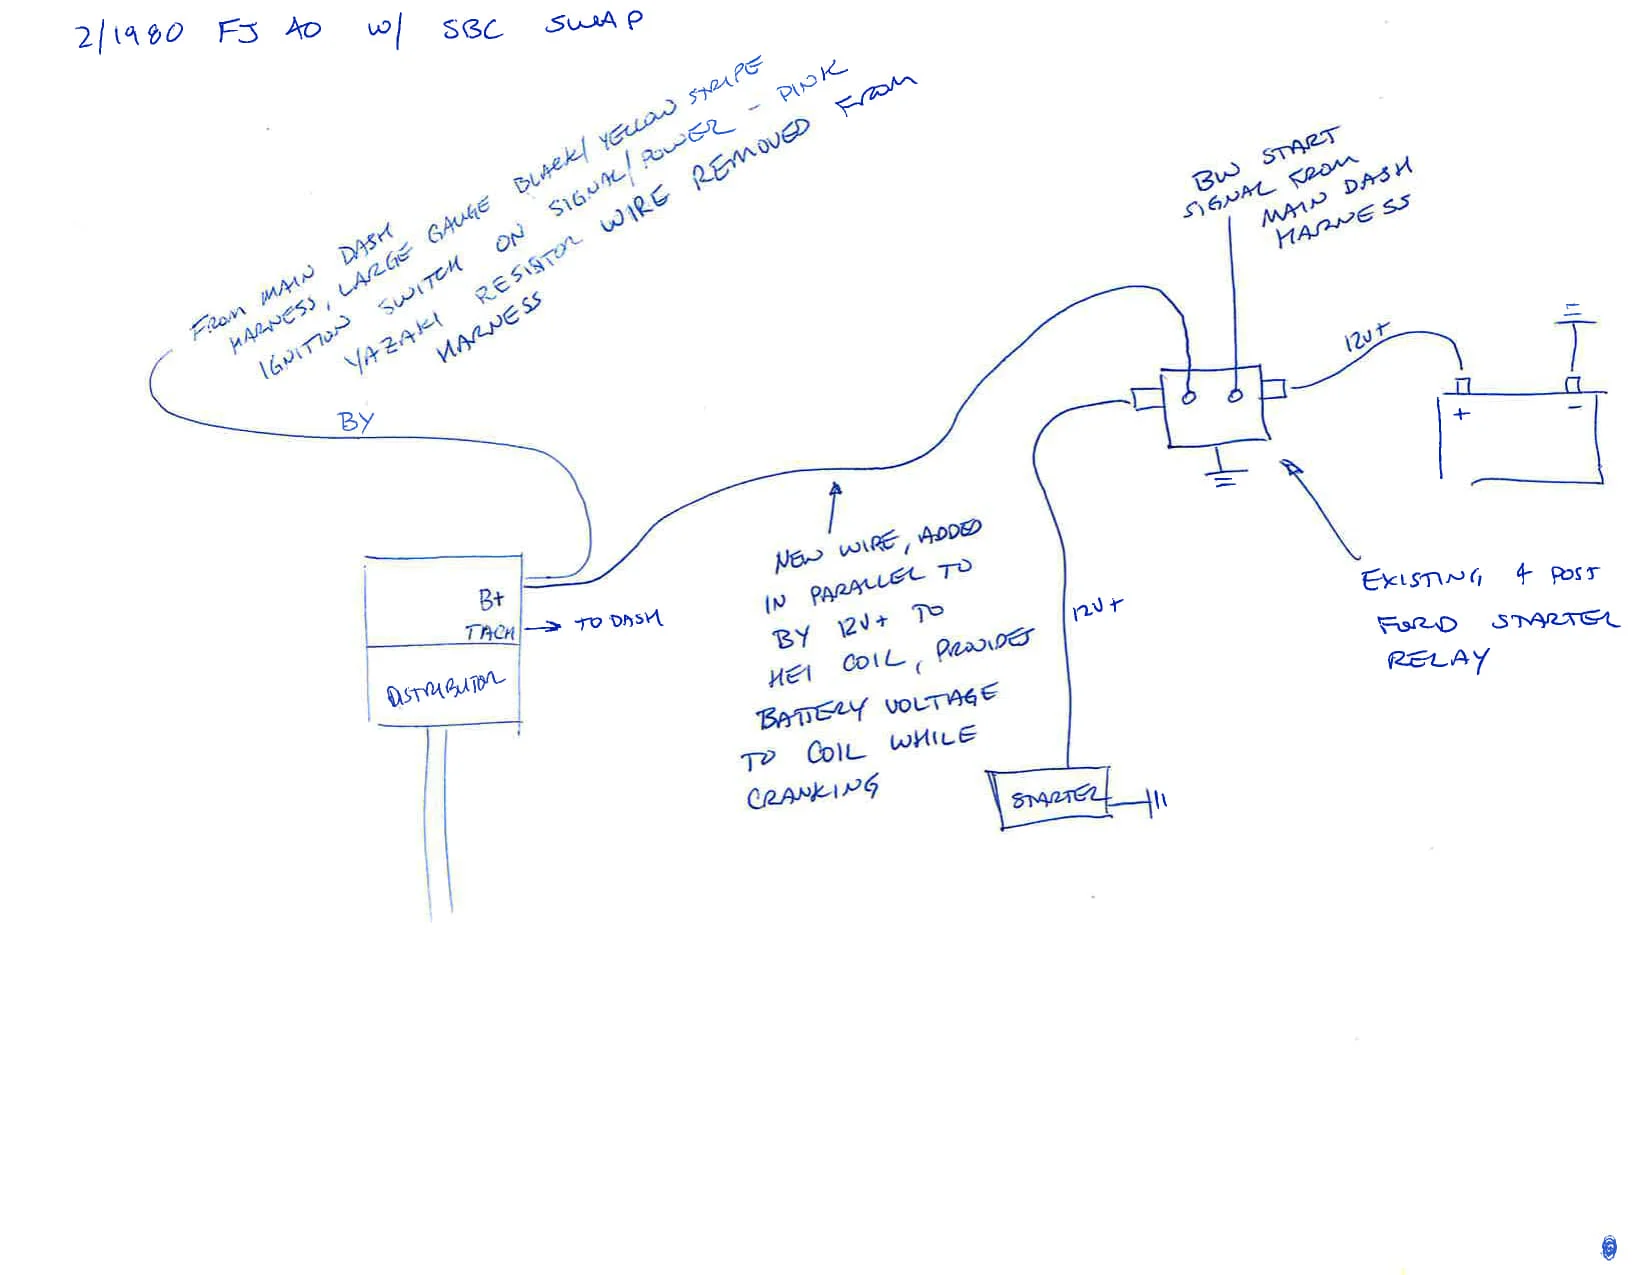 2/1980 FJ 40 W/ SBC SWAP
FROM MAIN DASH
HARNESS, LARGE GAUGE BLACK/YELLOW STRIPE
IGNITION SWITCH ON SIGNAL/POWER - PINK
YAZAKI RESISTOR WIRE REMOVED FROM
HARNESS
BY
BW START
SIGNAL FROM
MAIN DASH
HARNESS
12V+
+
-
B+
TACH
TO DASH
DISTRIBUTOR
NEW WIRE, ADDED
IN PARALLEL TO
BY 12V+ TO
HEI COIL, PROVIDES
BATTERY VOLTAGE
TO COIL WHILE
CRANKING
12V+
STARTER
EXISTING 4 POST
FORD STARTER
RELAY